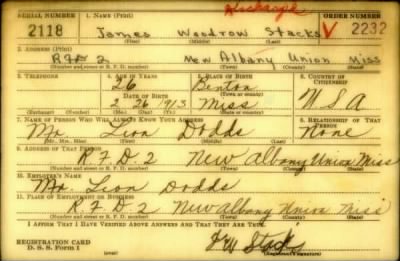 Discharge
SERIAL NUMBER 1. NAME (Print) ORDER NUMBER
2118 James Woodrow Stacks V 2232
(First) (Middle) (Last)
2. ADDRESS (Print)
RFD 2 New Albany Union Miss
(Number and street or R. F. D. number) (Town) (County) (State)
3. TELEPHONE 4. AGE IN YEARS 5. PLACE OF BIRTH 6. COUNTRY OF CITIZENSHIP
26 Benton
DATE OF BIRTH (Town or county)
2 26 1913 Miss U.S.A
(Exchange) (Number) (Mo.) (Day) (Yr.) (State or country)
7. NAME OF PERSON WHO WILL ALWAYS KNOW YOUR ADDRESS 8. RELATIONSHIP OF THAT PERSON
Mr. Leon Dodds None
(Mr., Mrs., Miss) (First) (Middle) (Last)
9. ADDRESS OF THAT PERSON
R.F.D.2 New Albany Union Miss
(Number and street or R. F. D. number) (Town) (County) (State)
10. EMPLOYER'S NAME
Mr. Leon Dodds
11. PLACE OF EMPLOYMENT OR BUSINESS
R.F.D.2 New Albany Union Miss
(Number and street or R. F. D. number) (Town) (County) (State)
I AFFIRM THAT I HAVE VERIFIED ABOVE ANSWERS AND THAT THEY ARE TRUE.
REGISTRATION CARD
D. S. S. Form 1 (over) (Registrant's signature)